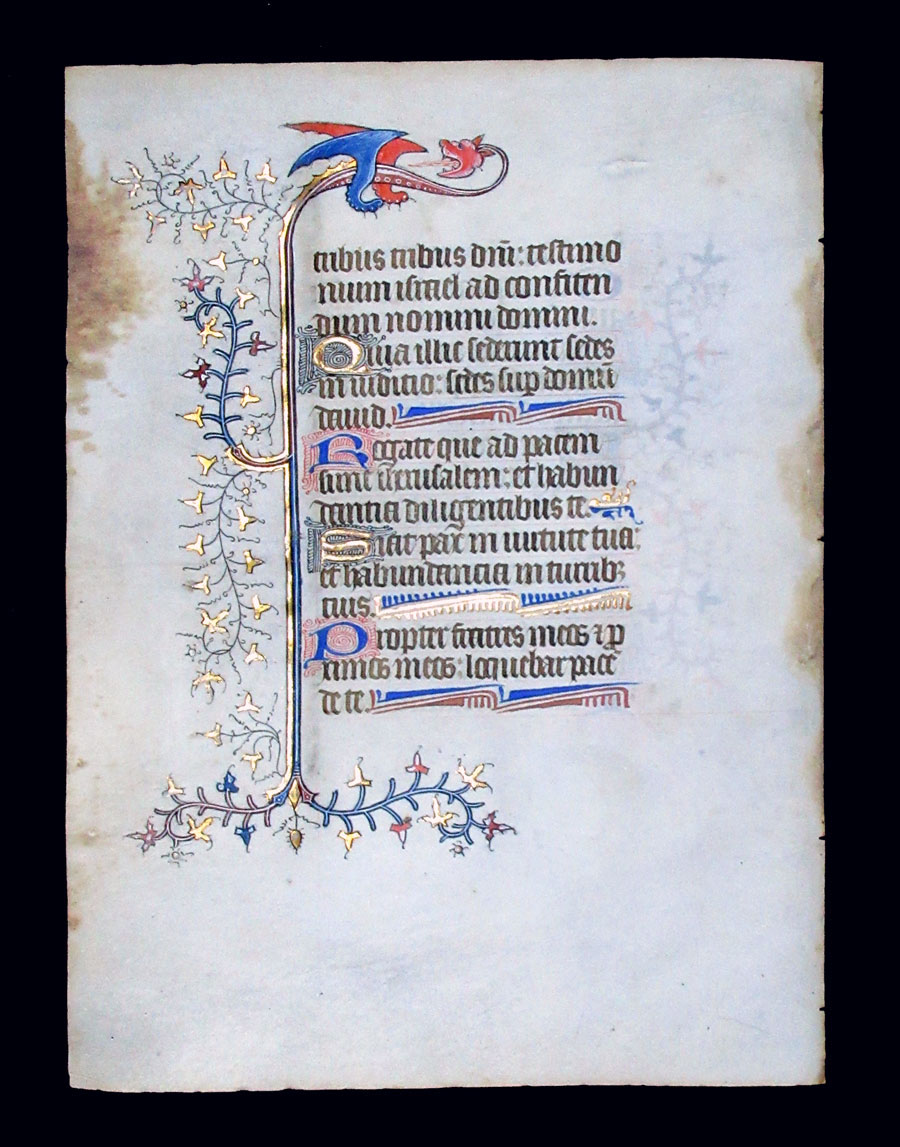 tribus tribus dñi: testimo
nium israel ad confiten
dum nomini domini.
Quia illic sederunt sedes
in iudicio: sedes sup domũ
dauid.
Rogate que ad pacem
sunt iherusalem: et habun
dantia diligentibus te.
Fiat pax in uirtute tua:
et habundantia in turrib;
tuis.
Propter fratres meos ⁊ p
ximos meos: loquebar pacẽ
de te.